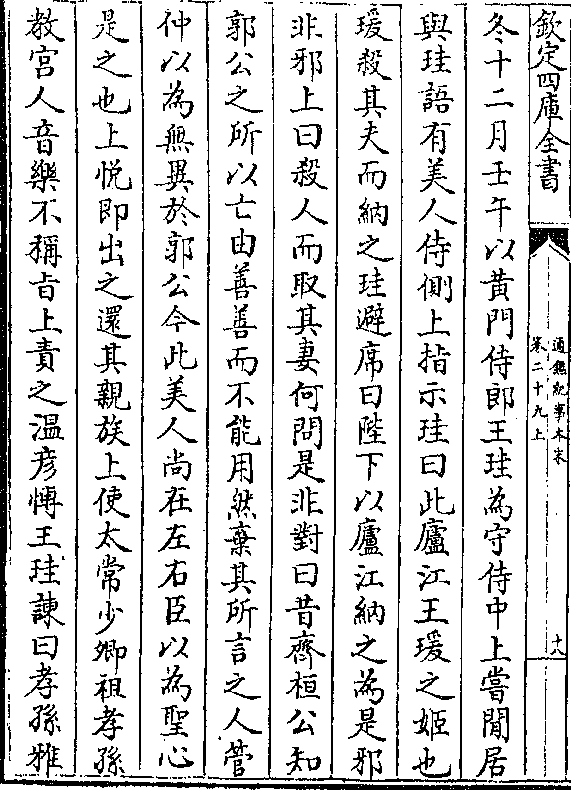 欽定四庫全書
通鑑紀事本末
卷二十九上
十八
冬十二月壬午以黄門侍郎王珪為守侍中上嘗閒居
與珪語有美人侍側上指示珪曰此廬江王瑗之姬也
瑗殺其夫而納之珪避席曰陛下以廬江納之為是邪
非邪上曰殺人而取其妻何問是非對曰昔齊桓公知
郭公之所以亡由善善而不能用然棄其所言之人管
仲以為無異於郭公今此美人尚在左右臣以為聖心
是之也上悦即出之還其親族上使太常少卿祖孝孫
教宫人音樂不稱旨上責之温彦愽王珪諫曰孝孫雅